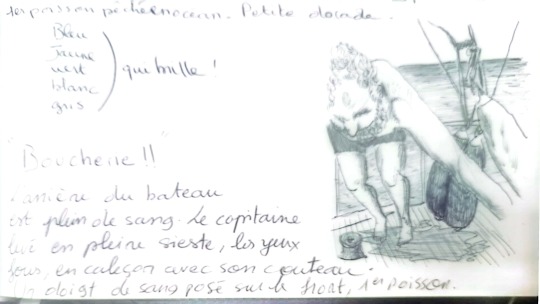 1er poisson pêché en ocean. Petite dorade.
Bleu
Jaune
vert } qui brille !
blanc
gris
"Boucherie !!"
L'arrière du bateau
est plein de sang. Le capitaine
levé en pleine sieste, les yeux
fous, en caleçon avec son couteau.
Un doigt de sang posé sur le front, 1er poisson.